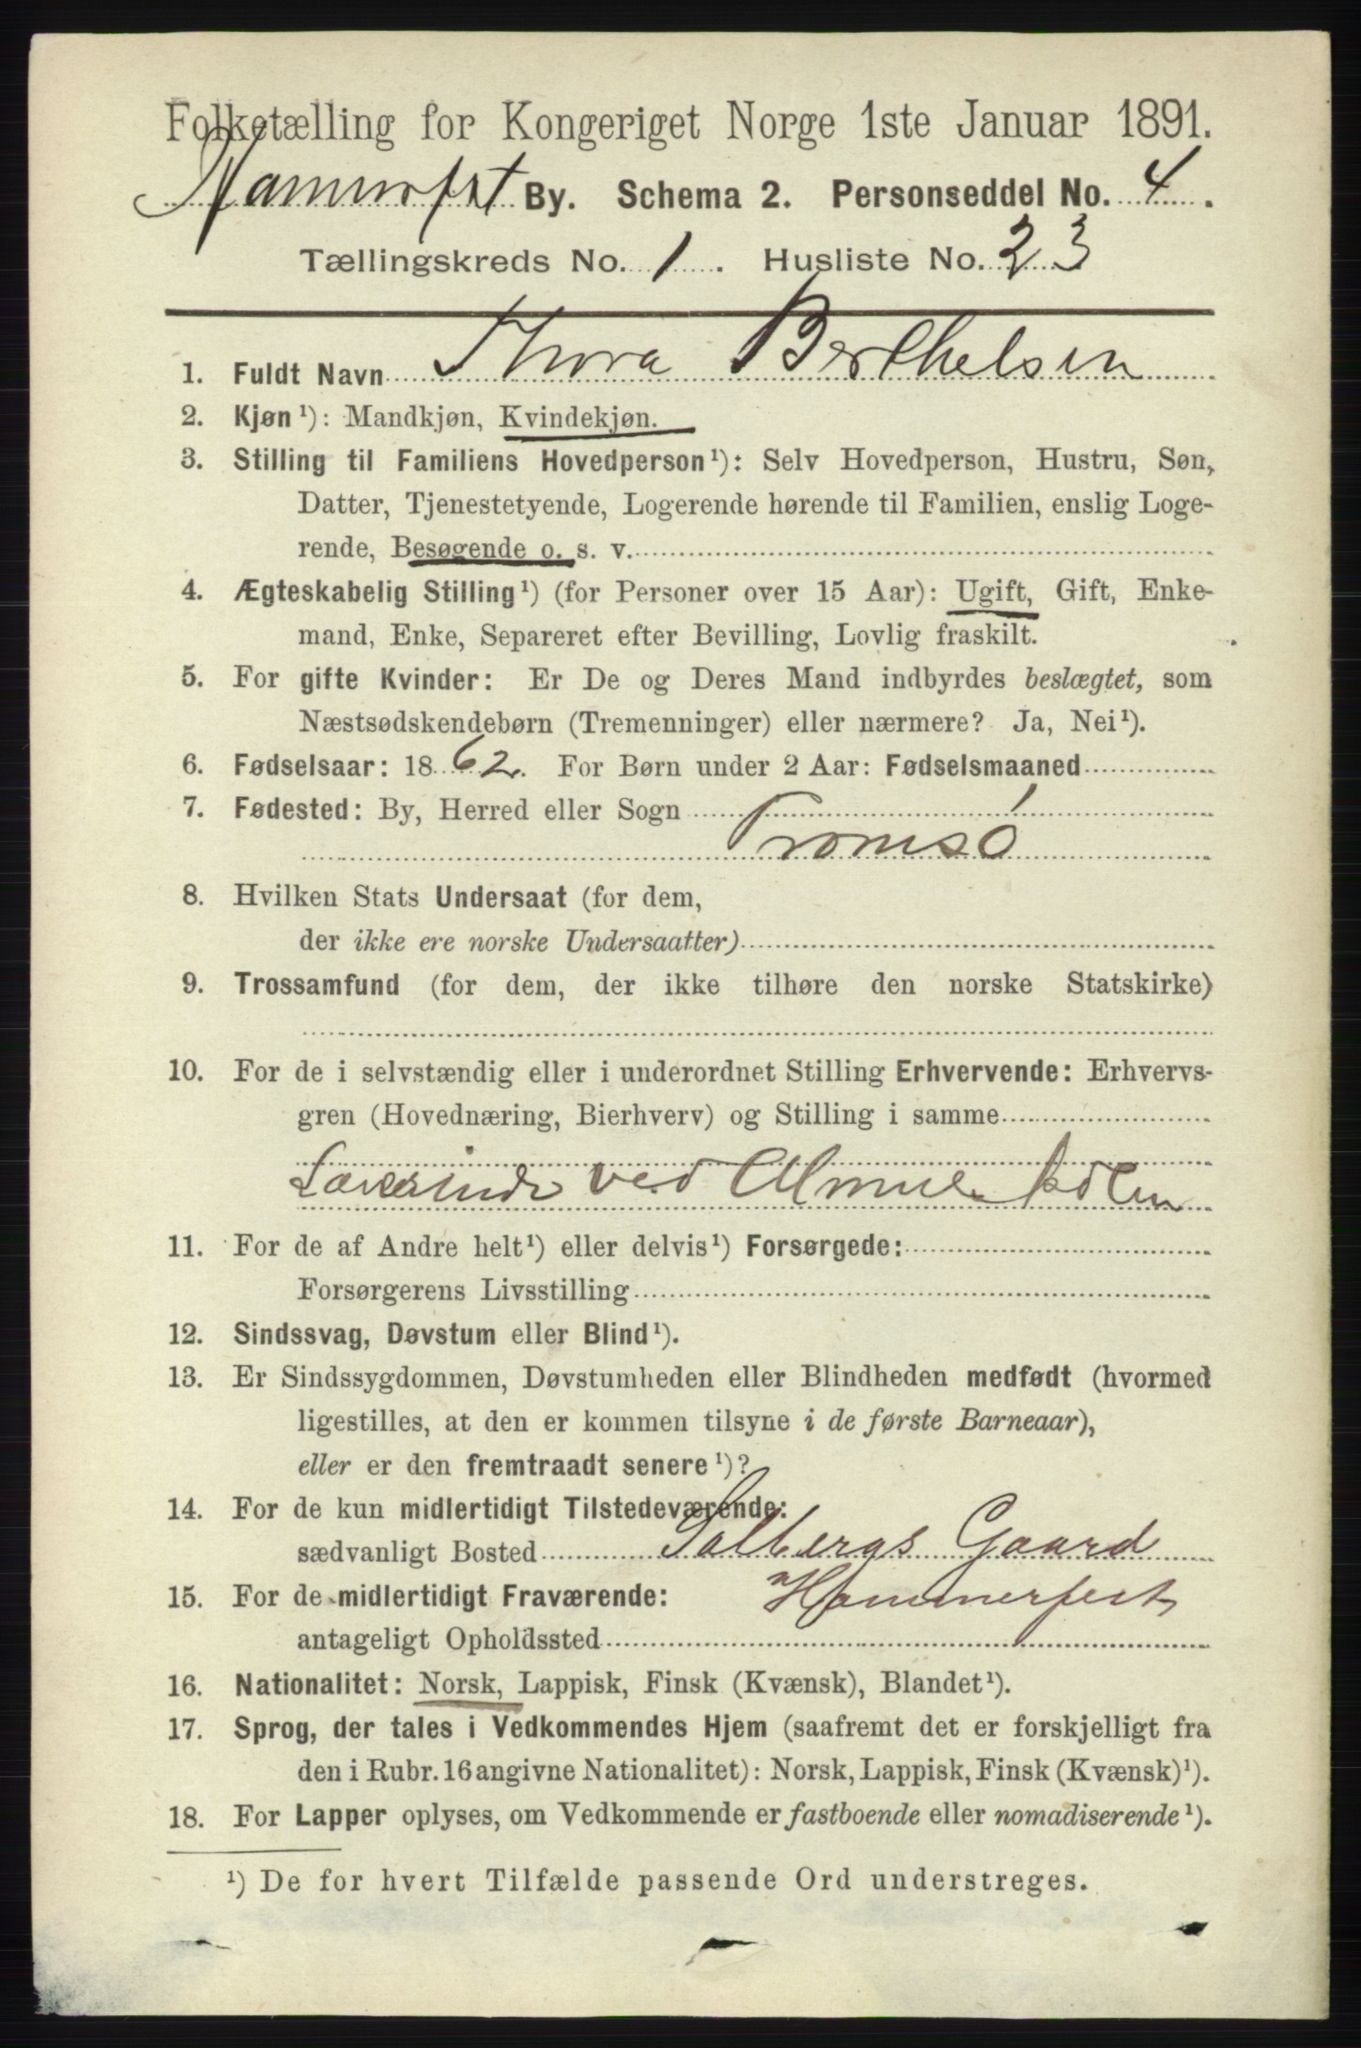 Folketælling for Kongeriget Norge 1ste Januar 1891.
Hammerfest By. Schema 2. Personseddel No. 4.
Tællingskreds No. 1. Husliste No. 23
1. Fuldt Navn Thora Berthelsen
2. Kjøn¹): Mandkjøn, Kvindekjøn.
3. Stilling til Familiens Hovedperson¹): Selv Hovedperson, Hustru, Søn,
Datter, Tjenestetyende, Logerende hørende til Familien, enslig Loge-
rende, Besøgende o. s. v.
4. Ægteskabelig Stilling¹) (for Personer over 15 Aar): Ugift, Gift, Enke-
mand, Enke, Separeret efter Bevilling, Lovlig fraskilt.
5. For gifte Kvinder: Er De og Deres Mand indbyrdes beslægtet, som
Næstsødskendebørn (Tremenninger) eller nærmere? Ja, Nei¹).
6. Fødselsaar: 1862. For Børn under 2 Aar: Fødselsmaaned
7. Fødested: By, Herred eller Sogn
Tromsó
8. Hvilken Stats Undersaat (for dem,
der ikke ere norske Undersaatter)
9. Trossamfund (for dem, der ikke tilhøre den norske Statskirke)
10. For de i selvstændig eller i underordnet Stilling Erhvervende: Erhvervs-
gren (Hovednæring, Bierhverv) og Stilling i samme
Lærerinde ved Almueskolen
11. For de af Andre helt¹) eller delvis¹) Forsørgede:
Forsørgerens Livsstilling
12. Sindssvag, Døvstum eller Blind¹).
13. Er Sindssygdommen, Døvstumheden eller Blindheden medfødt (hvormed
ligestilles, at den er kommen tilsyne i de første Barneaar),
eller er den fremtraadt senere¹)?
14. For de kun midlertidigt Tilstedeværende:
sædvanligt Bosted Solbergs Gaard
15. For de midlertidigt Fraværende: Hammerfest
antageligt Opholdssted
16. Nationalitet: Norsk, Lappisk, Finsk (Kvænsk), Blandet¹).
17. Sprog, der tales i Vedkommendes Hjem (saafremt det er forskjelligt fra
den i Rubr. 16 angivne Nationalitet): Norsk, Lappisk, Finsk (Kvænsk)¹).
18. For Lapper oplyses, om Vedkommende er fastboende eller nomadiserende¹).
¹) De for hvert Tilfælde passende Ord understreges.